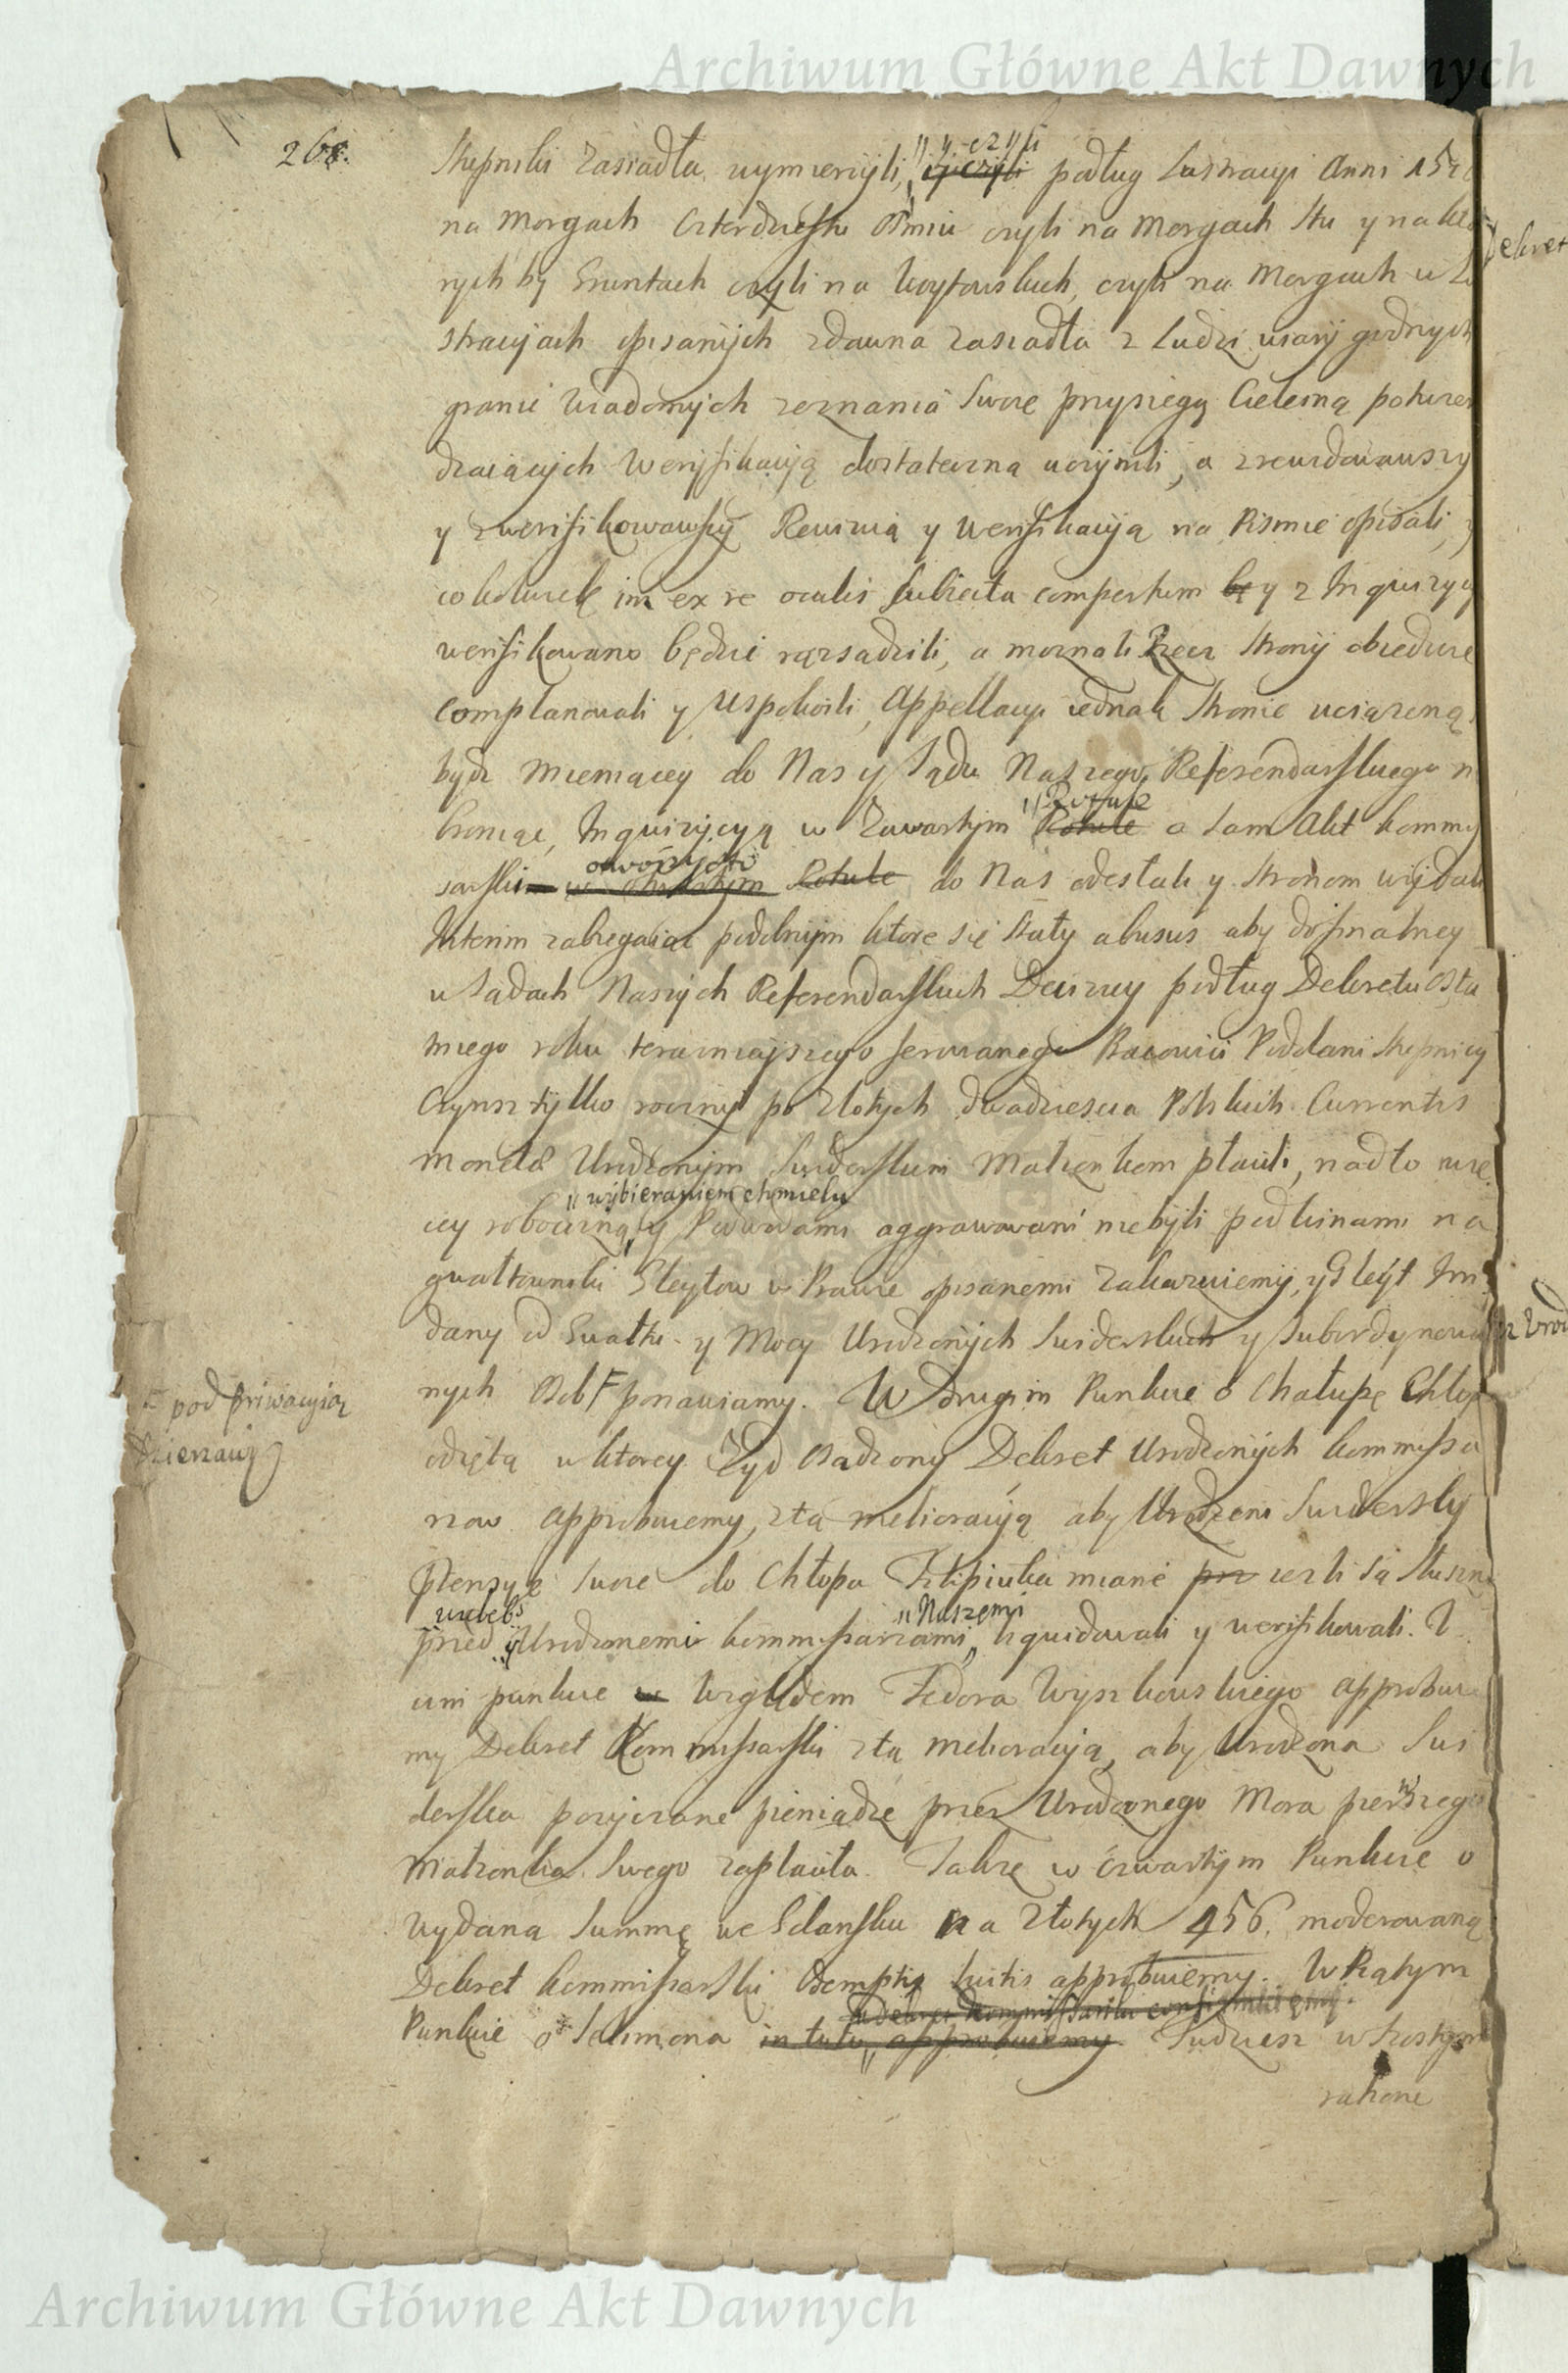 Archiwum Główne Akt Dawnych
268.
Stępniki zasiadła wymierzyli, "y czyli podług Lustracyi Anni 15
na Morgach Czterdziestu Ośmiu czyli na Morgach Stu y na któ
rych by Gruntach czyli na Woytowskich, czyli na Morgach w Lu
stracyiach opisanych zdawna zasiadła z Ludzi wiary godnych
granic wiadomych zeznania swoie przysięgą Cielesną potwier
dzaiących Weryfikacyją dostateczną uczynili, a zrewidowawszy
y zwerifikowawszy Rewizią y Werifikacyją na Pismie opisali, y
cokolwiek im ex re oculis subiecta compertum y z Inquizycyi
werifikowano będzie rozsądzili, a możnali Rzecz Strony obiedwie
complanowali y uspokoili, Appellacyi iednak Stronie uciążoną
bydź mieniącey do Nas y Sądu Naszego Referendarskiego n
broniąc, Inquizycyią w Zawartym "Rotule a sam Akt kommis
sarski otworzysto do Nas odesłali y Stronom wydali
Interim zabiegaiąc podobnym które się stały abusus aby do finalney
w Sądach Naszych Referendarskich Decizyi podług Dekretu Osta
tniego roku teraznieyszego ferowanego Racowici Poddani Stępnicy
Czynsz tylko roczny po Złotych dwadziescia Polskich Currentis
moneta Urodzonym Suiderskim Małżonkom płacili, nadto wię
"wybieraniem chmielu
cey robocizną, y Podwodami aggrawowani niebyli pod winami na
gwałtowniki Gleytow w Prawie opisanemi zakazuiemy, y Gleyt Im
dany od Gwałtu y Mocy Urodzonych Suiderskich y Subordynowa
nych Osob F ponawiamy. W drugim Punkcie o Chałupę Chłop
F pod priwacyią
Dzierzawy
odiętą w ktorey Żyd osadzony Dekret Urodzonych kommissa
rzow approbuiemy, z tą melioracyią aby Urodzeni Suiderscy
pretensye swoie do Chłopa Filipiuka miane iezli są słuszne
przed Urodzonemi kommissarzami "Naszemi liquidowali y werifikowali. T
cim punkcie względem Fedora Wyszkowskiego approbuie
my Dekret Kommissarski z tą melioracyią, aby Urodzona Sui
derska pozyczane pieniądze przez Urodzonego Mora pierwszego
Małżonka swego zapłaciła. Także w czwartym Punkcie o
wydaną Summę we Gdansku na Złotych 456. moderowaną
Dekret kommissarski demptis luitis approbuiemy. W Piątym
Punkcie o Schmona in toto approbuiemy. Tudziesz w szostym
ratione
Dekret
Archiwum Główne Akt Dawnych